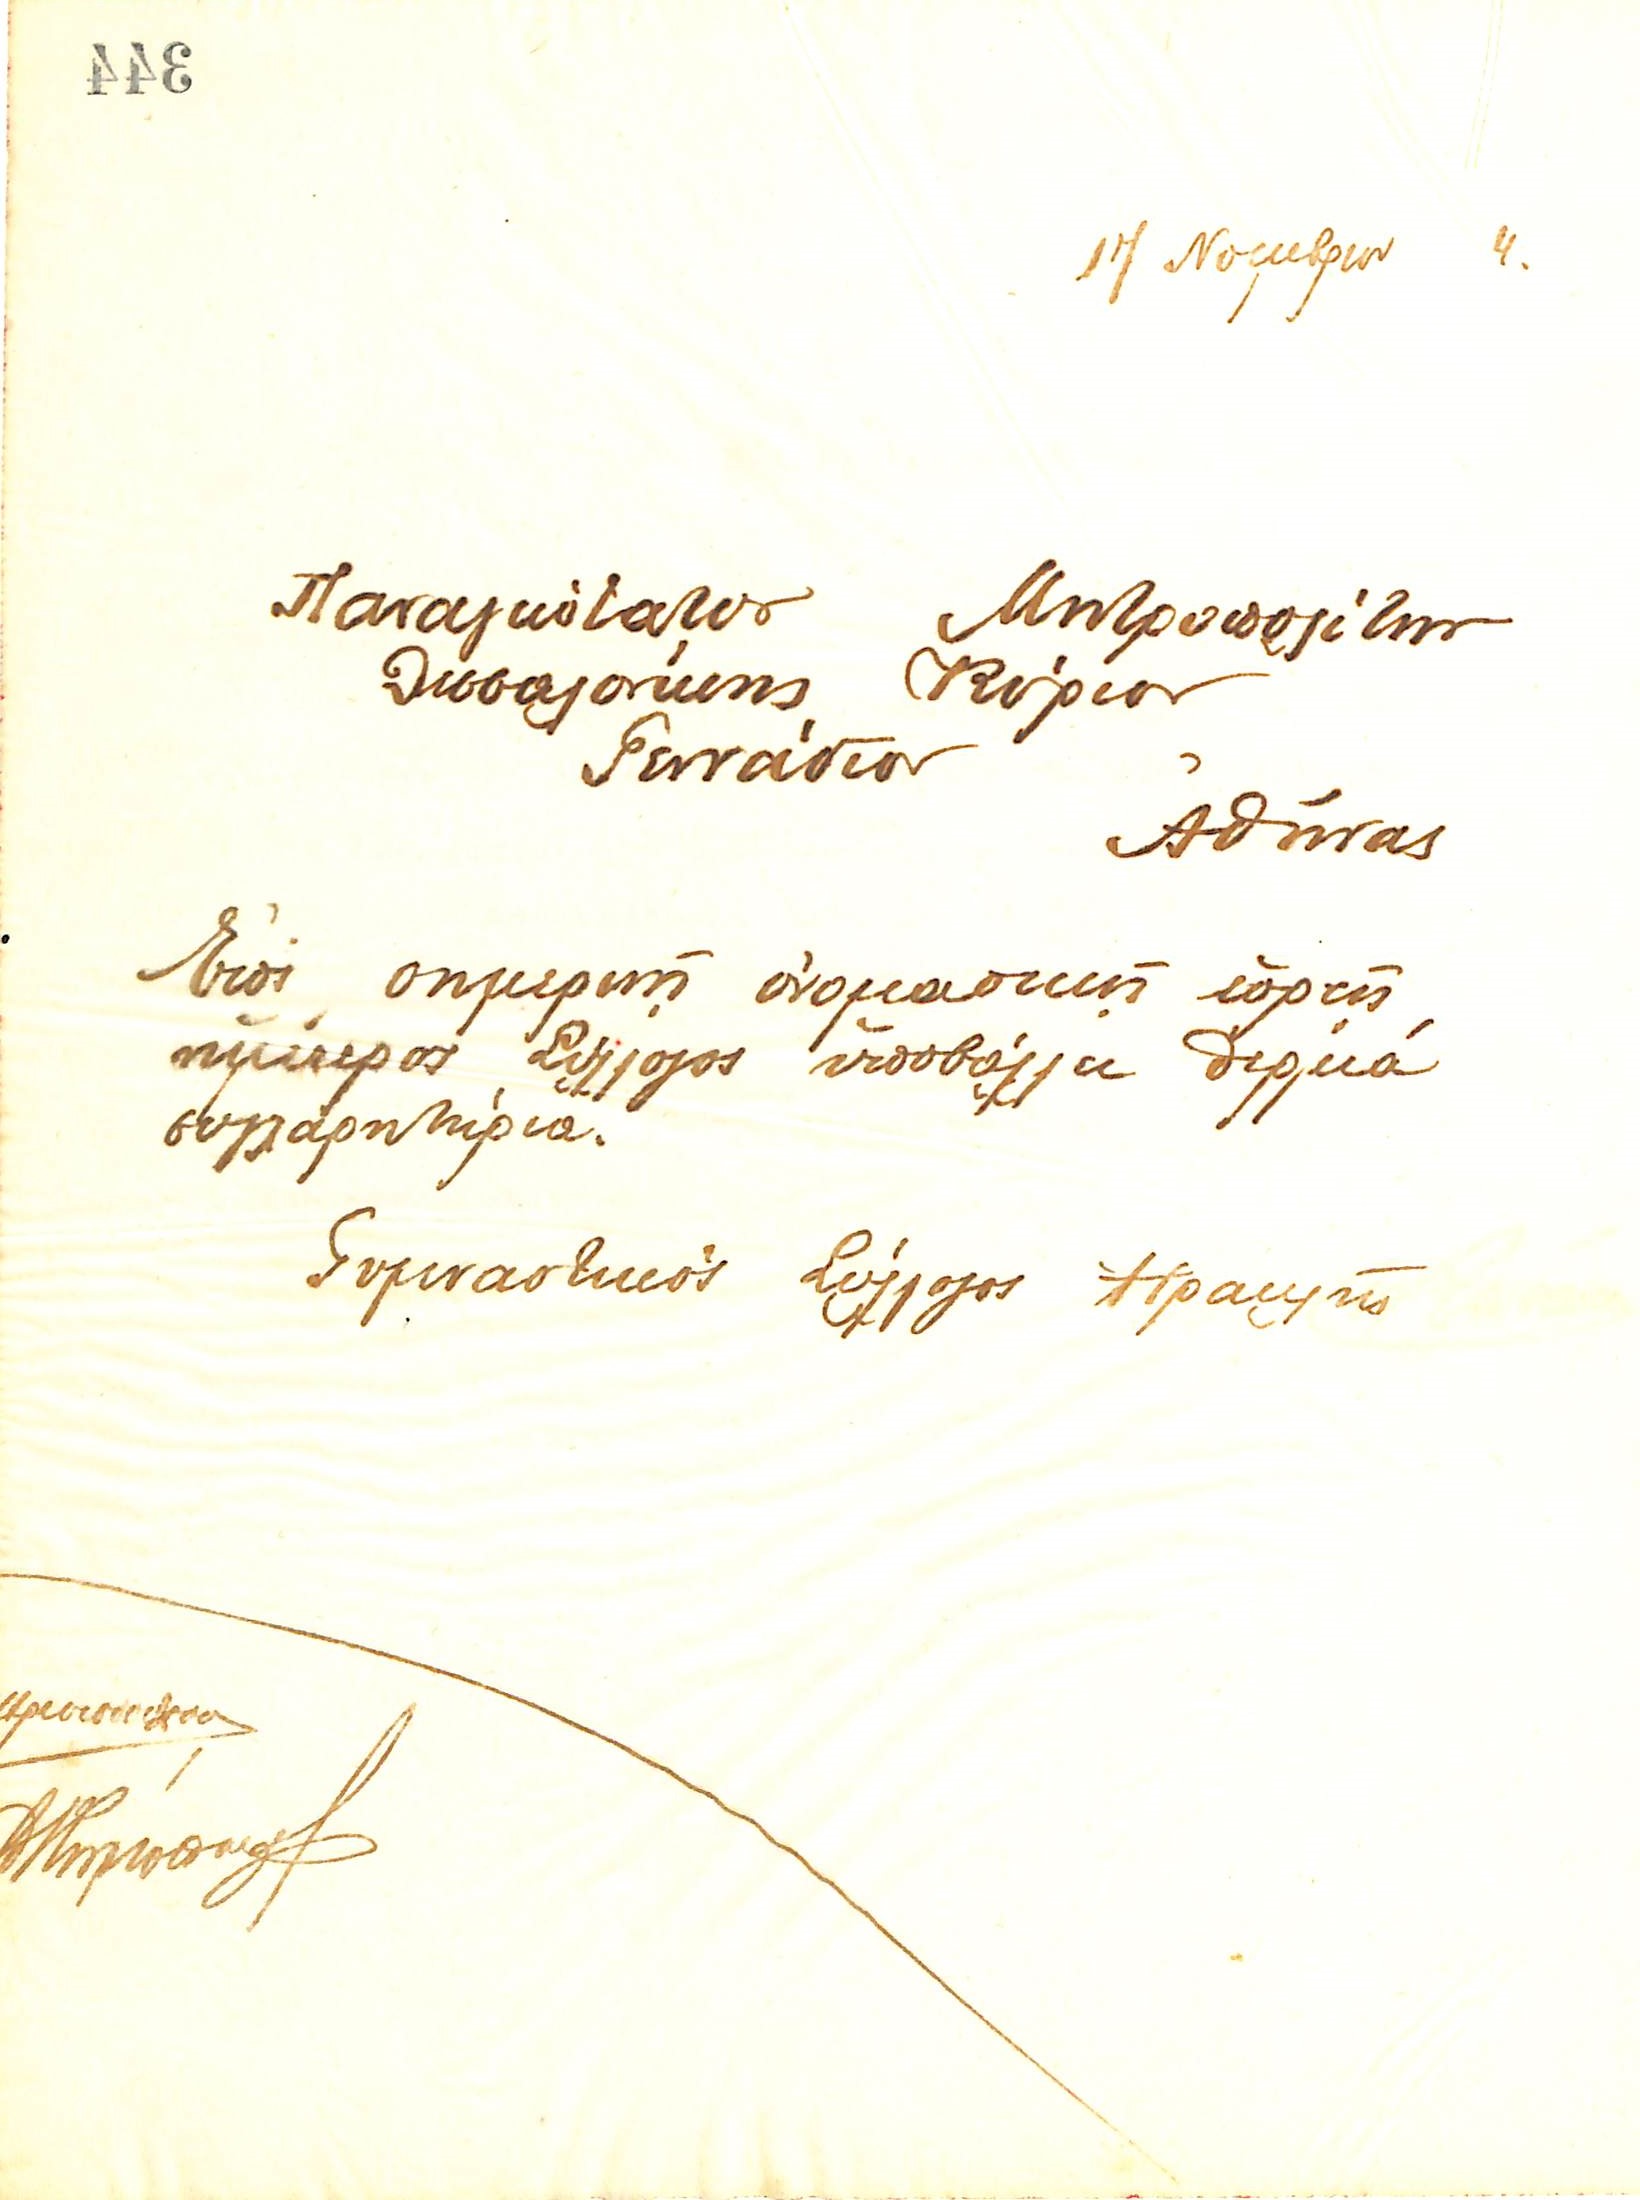 344
17 Νοεμβρίου 4.
Παναγιώτατον Μητροπολίτην
Θεσσαλονίκης Κύριον
Γεννάδιον
Ἀθήνας
Ἐπὶ σημερινῇ ὀνομαστικῇ ἑορτῇ
ἡμέτερος Σύλλογος ὑποβάλλει θερμά
συγχαρητήρια.
Γυμναστικὸς Σύλλογος Ἡρακλῆς